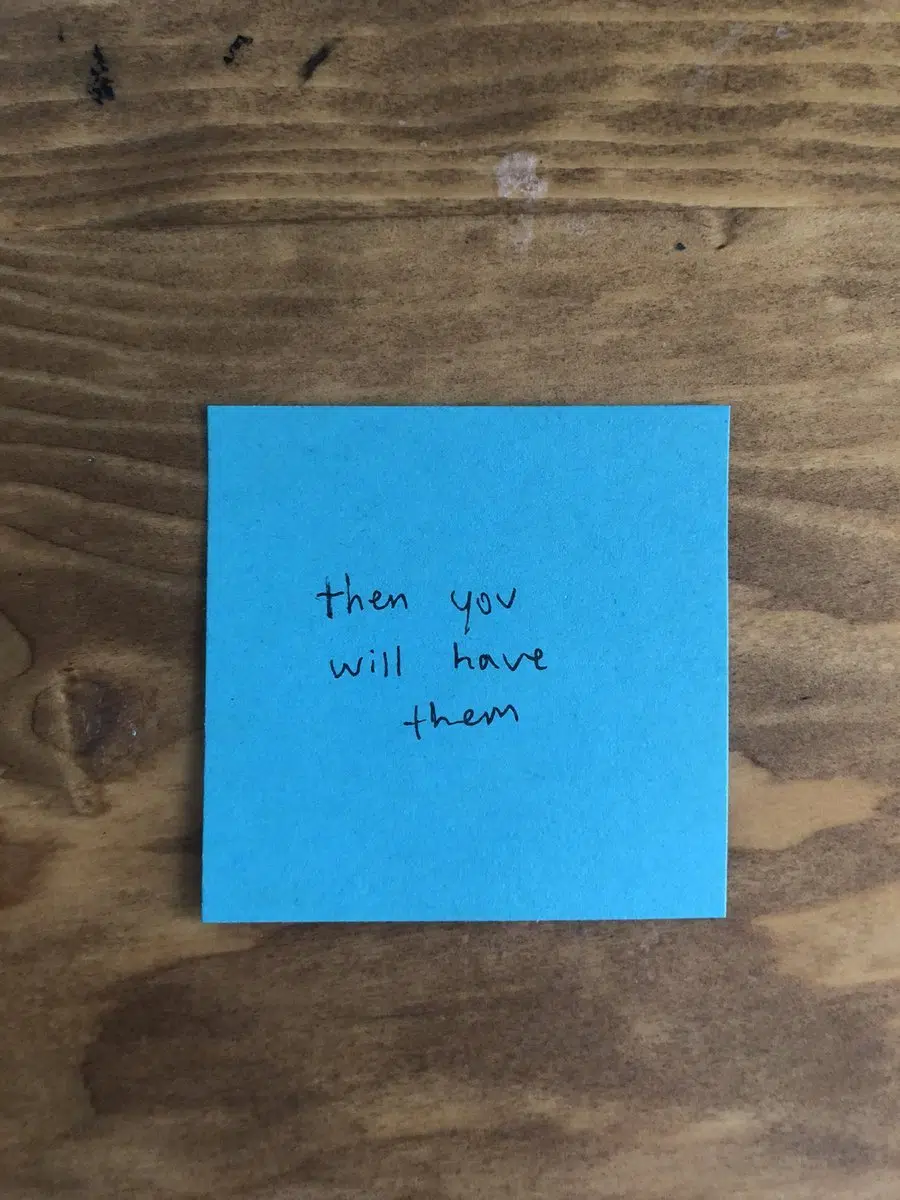 then you
will have
them